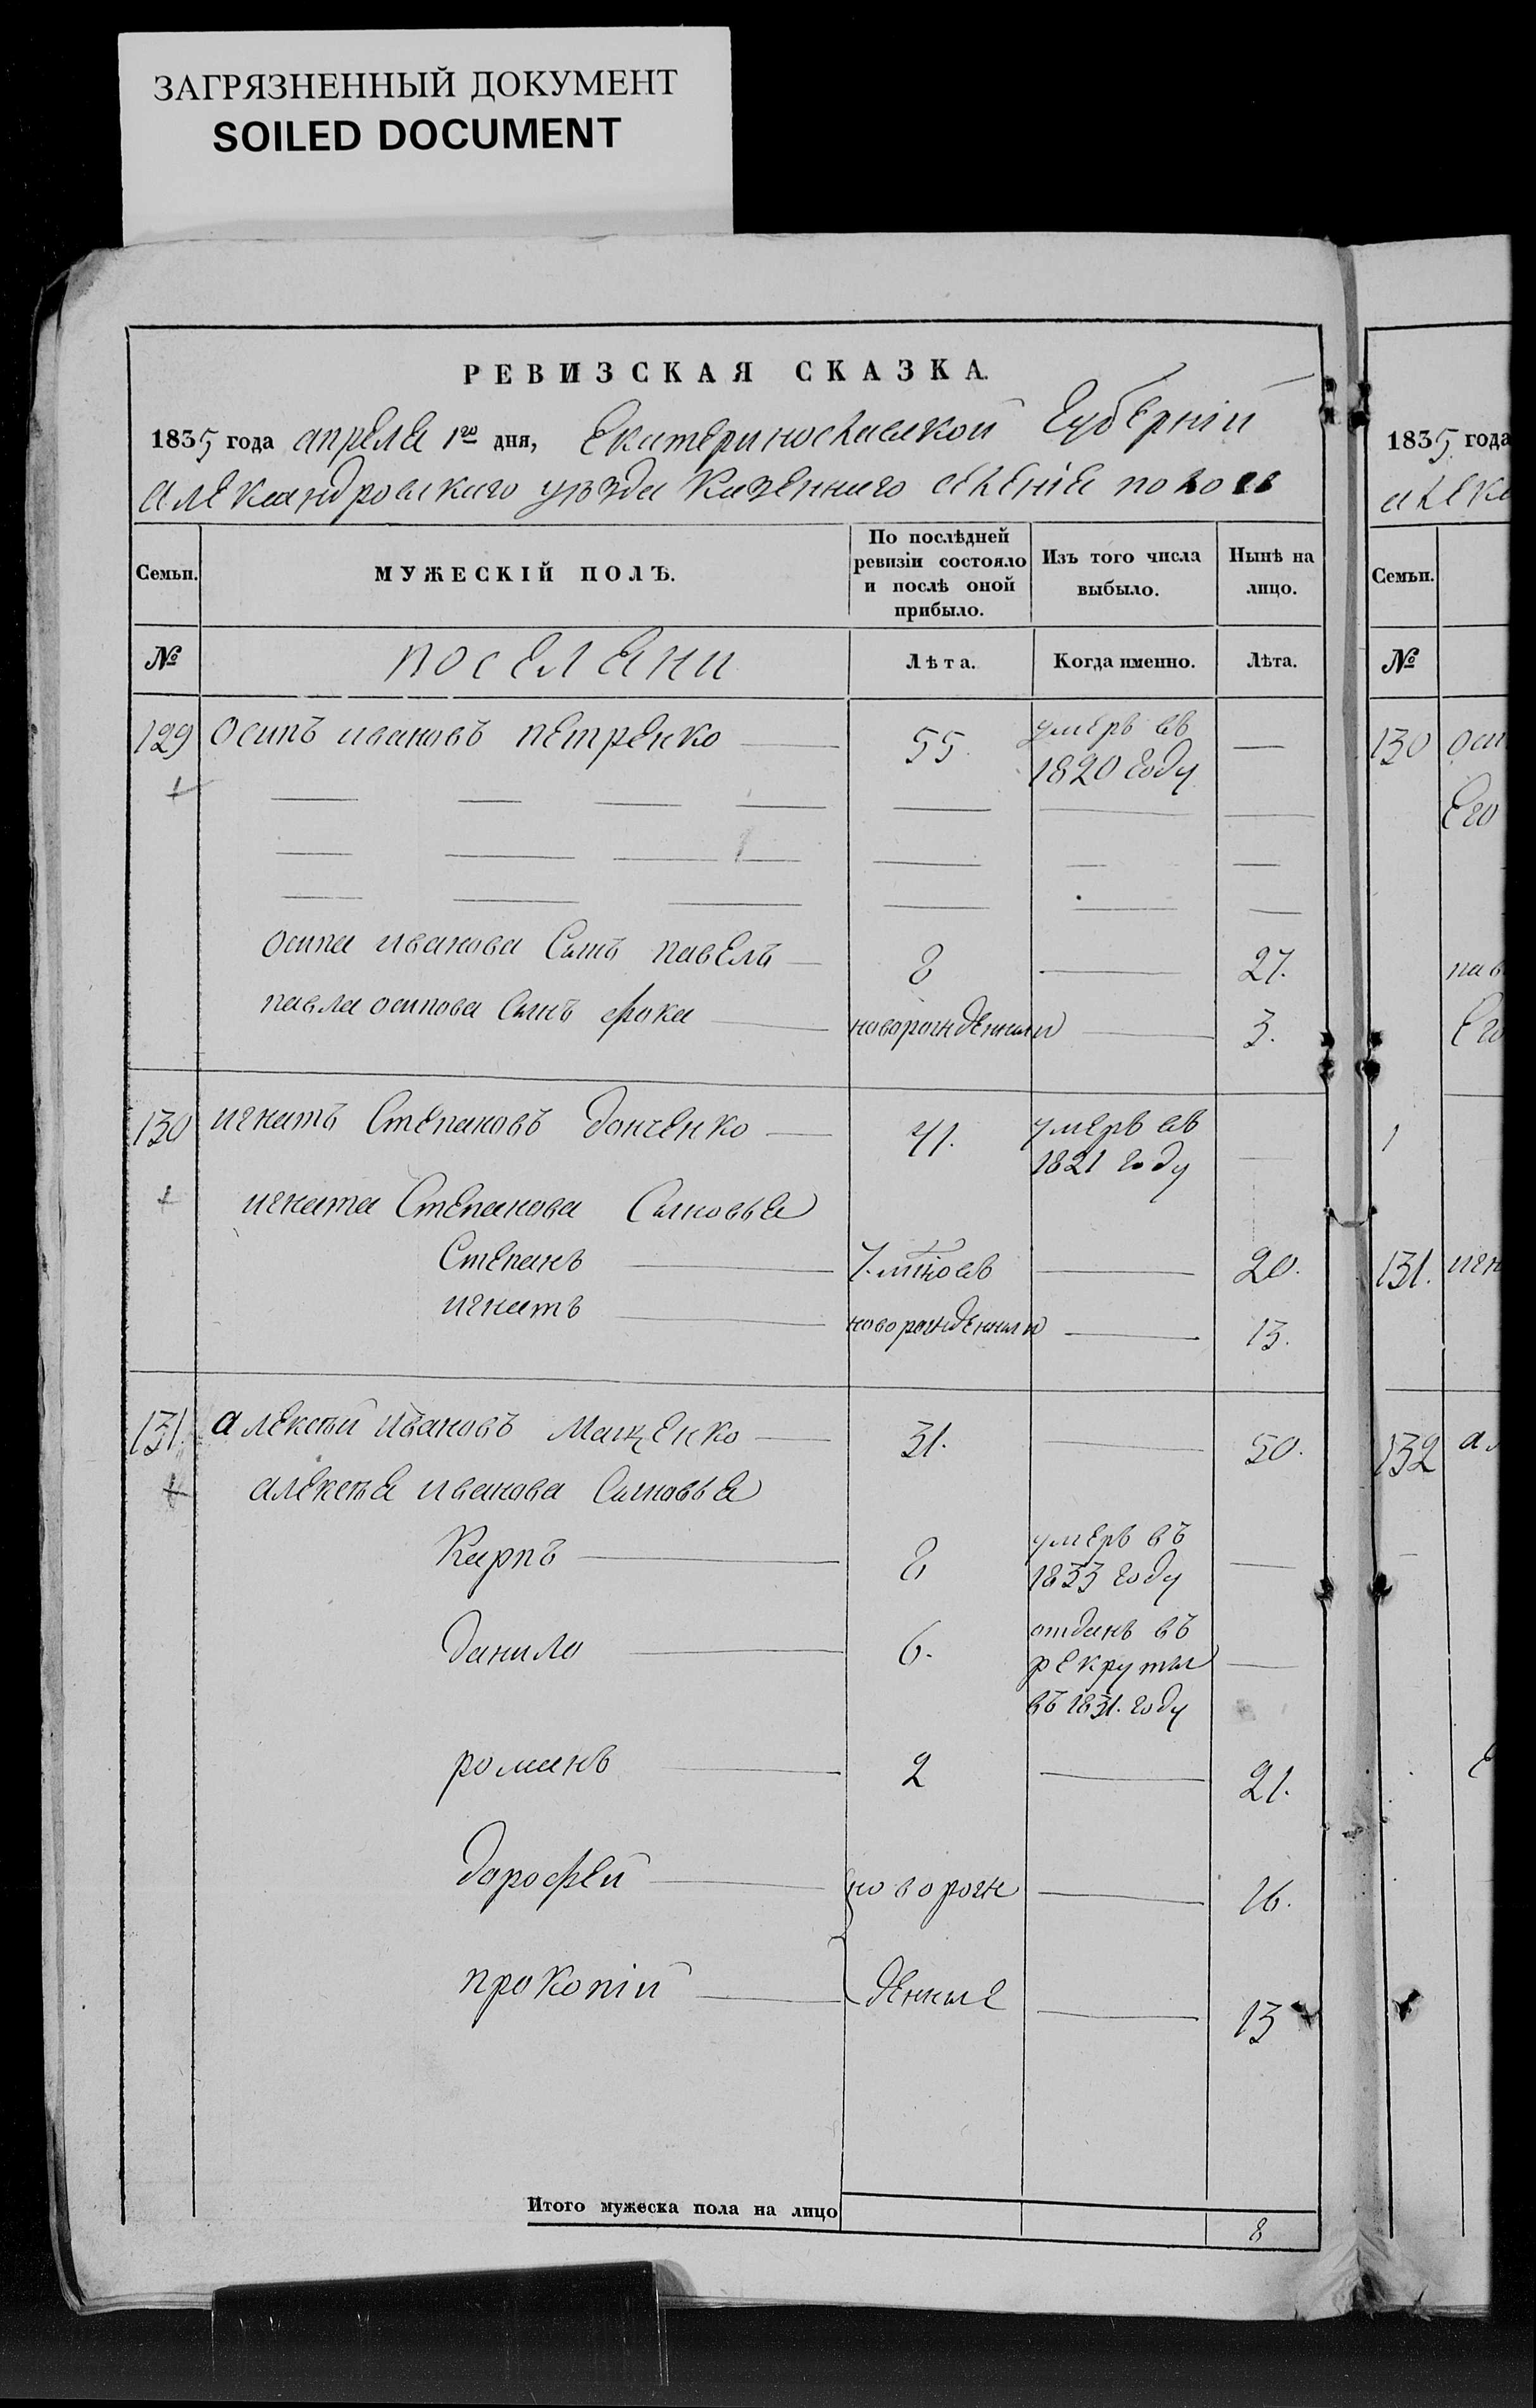 ЗАГРЯЗНЕННЫЙ ДОКУМЕНТ
SOILED DOCUMENT
РЕВИЗСКАЯ СКАЗКА.
1835 года апреля 1го дня, Екатеринославской Губерніи
Александровскаго уѣзда Казеннаго селенія
Семьи. МУЖЕСКІЙ ПОЛЪ. По послѣдней ревизіи состояло и послѣ оной прибыло. Изъ того числа выбыло. Нынѣ на лицо.
№ поселяни Лѣта. Когда именно. Лѣта.
129 Осипъ ивановъ петренко 55. умеръ въ 1820 году
осипа иванова Сынъ павелъ 8 27.
павла осипова Сынъ фока новорожденный 3.
130 игнатъ Степановъ донченко 41. умеръ въ 1821 году
игната Степанова Сыновья
Степанъ 20.
игнатъ новорожденный 13.
131. алексѣй ивановъ Мащенко 31. 50.
алексѣя иванова Сыновья
Карпъ 8 умеръ въ 1833 году
данило 6. отданъ въ рекруты въ 1831. году
романъ 2 21.
дорофей новорож 16.
прокопій денные 13
Итого мужеска пола на лицо 8
1835 года
алек
Семьи.
№
130 оси
Его
пав
Его
131. игн
132 ал